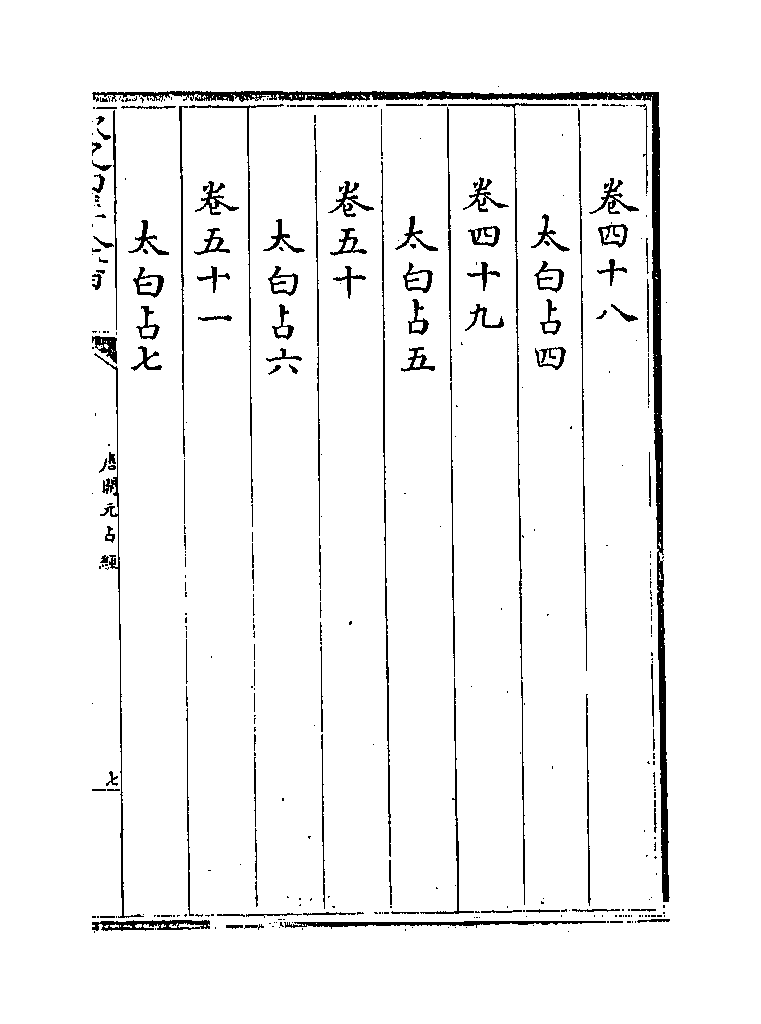 卷四十八
太白占四
卷四十九
太白占五
卷五十
太白占六
卷五十一
太白占七
唐開元占經
七